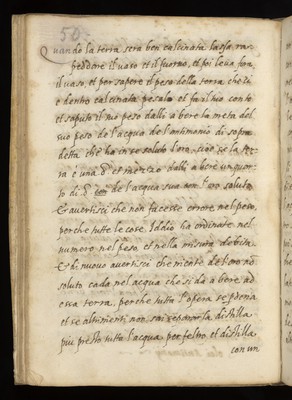 50
Quando la terra sera ben calcinata lassa raf
freddare il vaso et il fuorno, et poi leva fora
il vaso, et per sapere il peso della terra che li
e dentro calcinata pesala et fa il tuo conto
et saputo il suo peso dalli a bere la meta del
suo peso de l'acqua de l'antimonio di sopra
detta che ha in se soluto l'oro, cioe se la ter
ra è una et mezzo dalli a bere un quar
to di de l'acqua sua con l'oro soluto
& avertisci che non facesse errore nel peso,
perche tutte le cose Iddio ha ordinate nel
numero nel peso et nella misura debita
& di nuovo avertisci che niente de l'oro as
soluto cada nel acqua che si da a bere ad
essa terra, perche tutta l'opera se perderia
et se altrimenti non sai separarla distilla
piu presto tutta l'acqua per feltro et distilla
con un